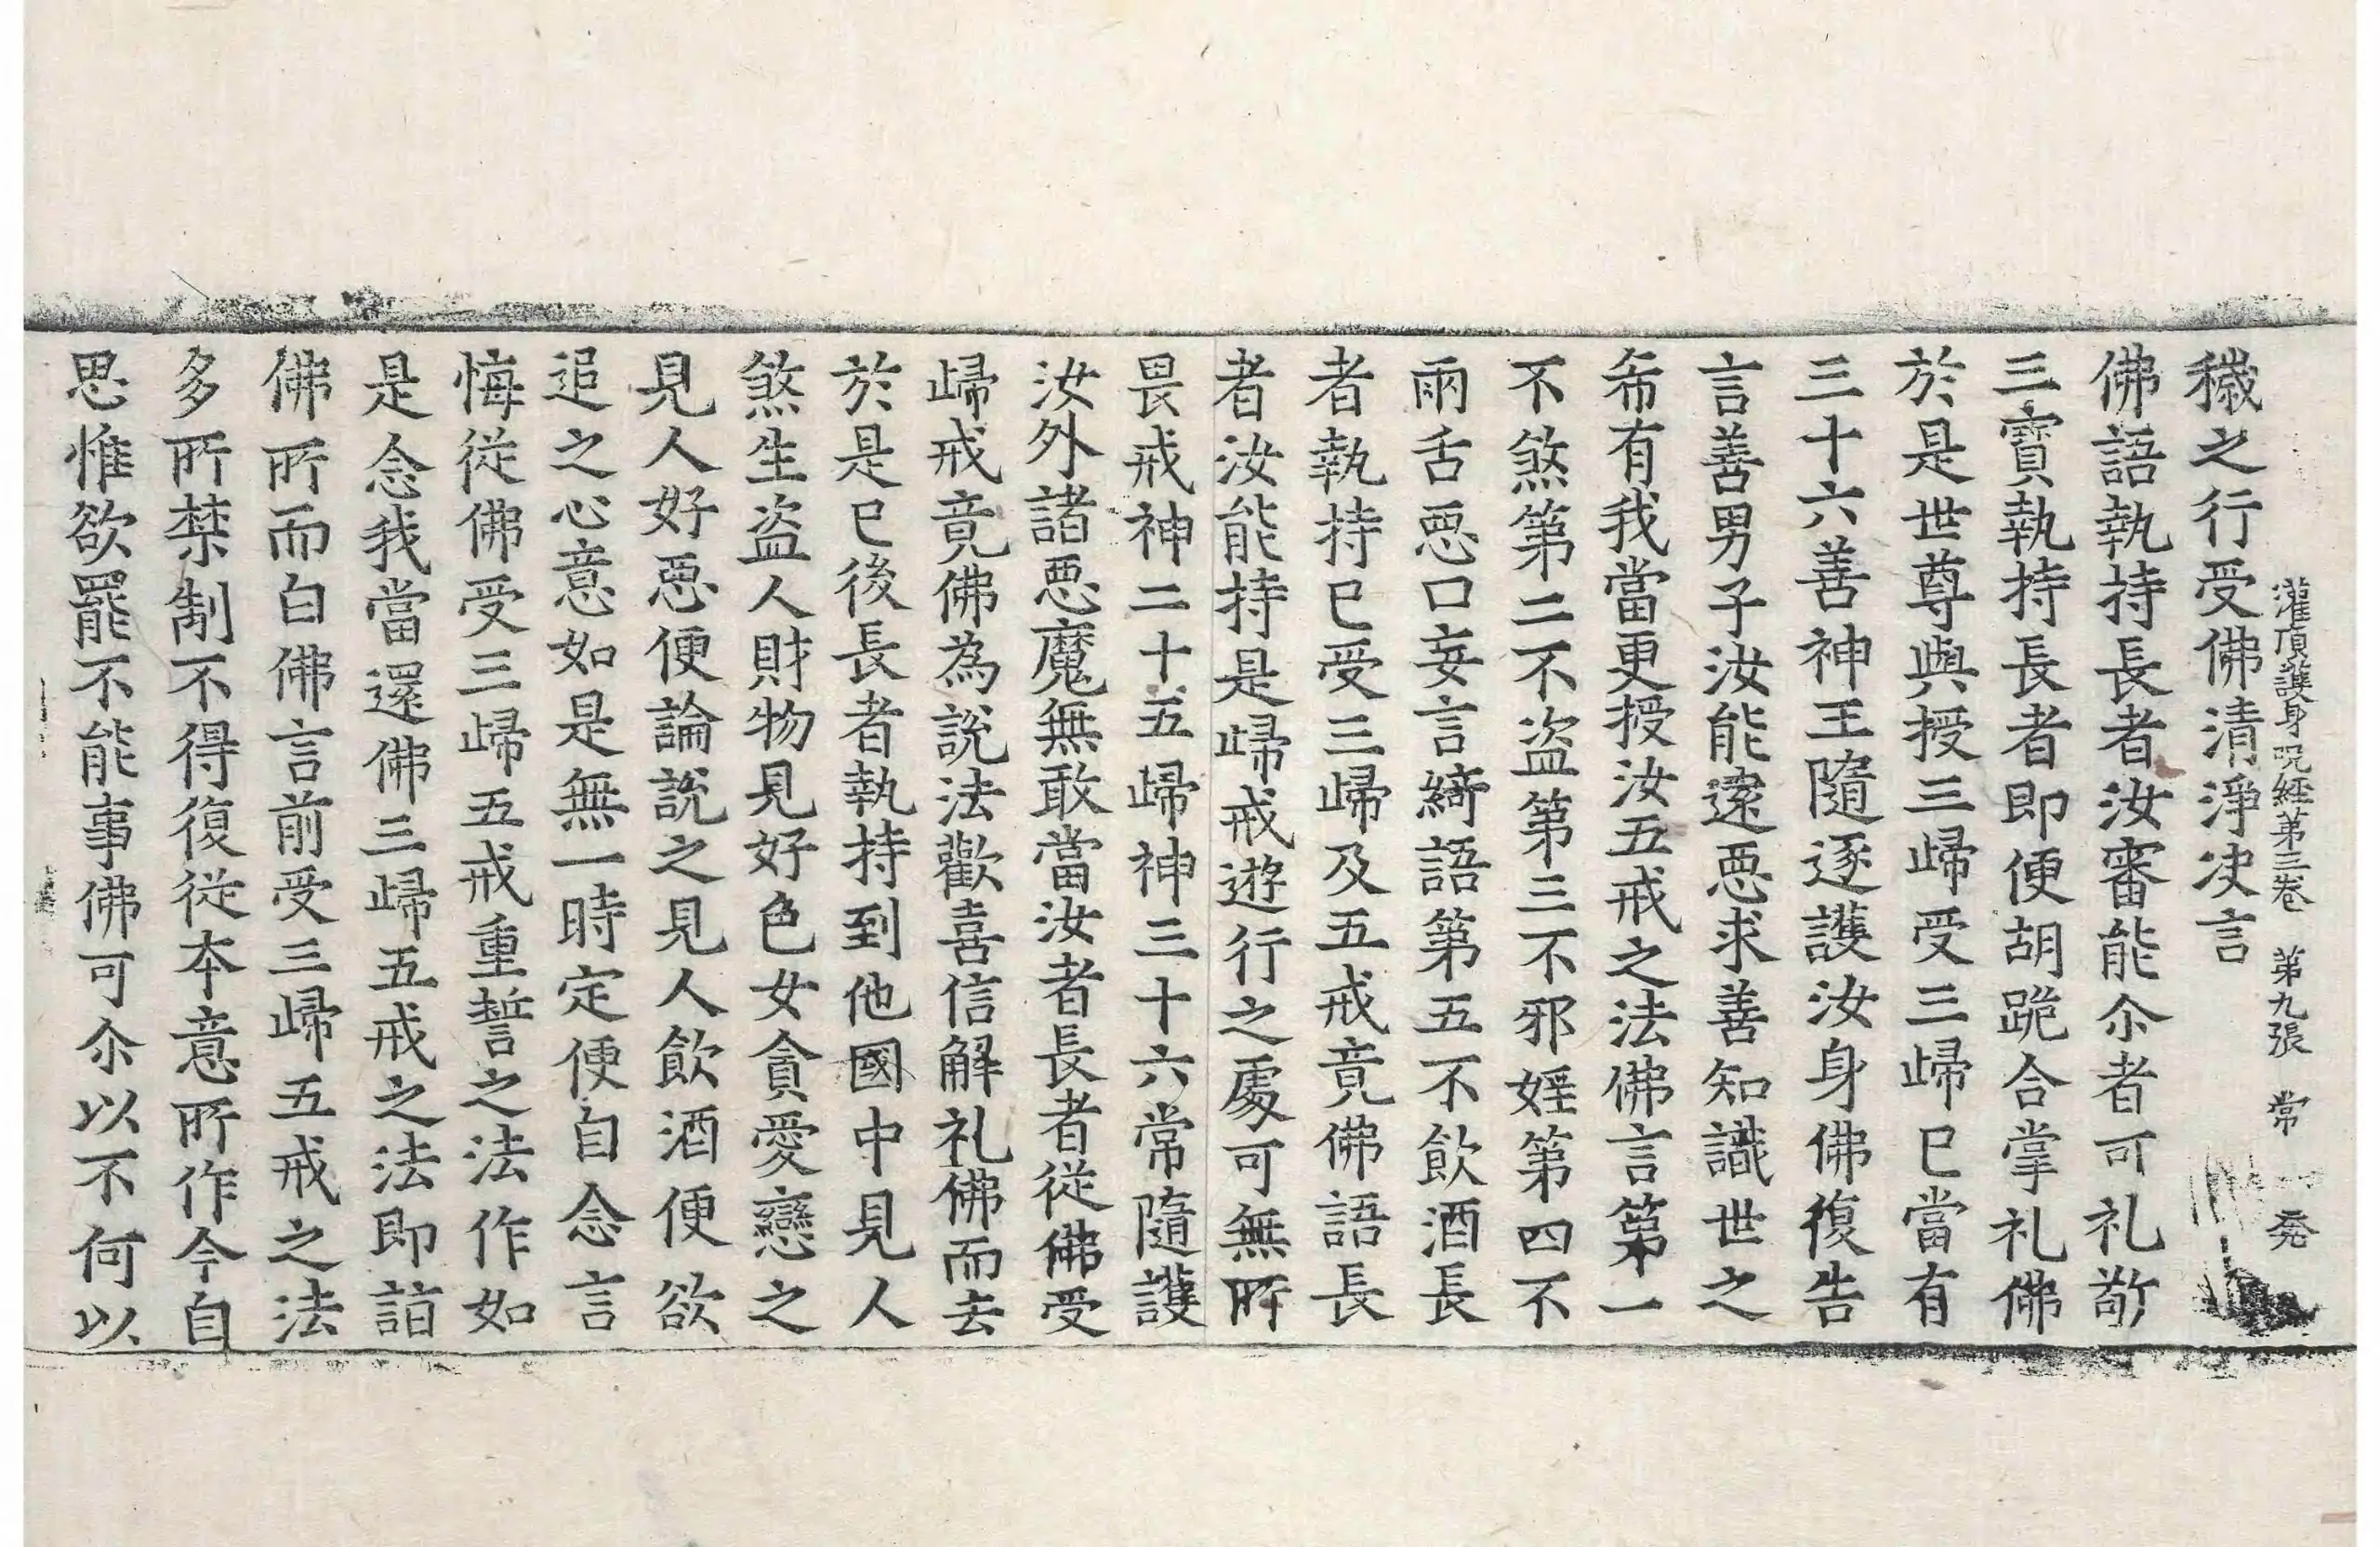 灌頂護身呪經第三卷 第九張 常
穢之行受佛清淨決言
佛語執持長者汝審能尒者可礼敬
三寶執持長者即便胡跪合掌礼佛
於是世尊與授三歸受三歸已當有
三十六善神王隨逐護汝身佛復告
言善男子汝能遠惡求善知識世之
希有我當更授汝五戒之法佛言第一
不煞第二不盜第三不邪婬第四不
兩舌惡口妄言綺語第五不飲酒長
者執持已受三歸及五戒竟佛語長
者汝能持是歸戒遊行之處可無所
畏戒神二十五歸神三十六常隨護
汝外諸惡魔無敢當汝者長者從佛受
歸戒竟佛為說法歡喜信解礼佛而去
於是已後長者執持到他國中見人
煞生盜人財物見好色女貪愛戀之
見人好惡便論說之見人飲酒便欲
追之心意如是無一時定便自念言
悔從佛受三歸五戒重誓之法作如
是念我當還佛三歸五戒之法即詣
佛所而白佛言前受三歸五戒之法
多所禁制不得復從本意所作今自
思惟欲罷不能事佛可尒以不何以